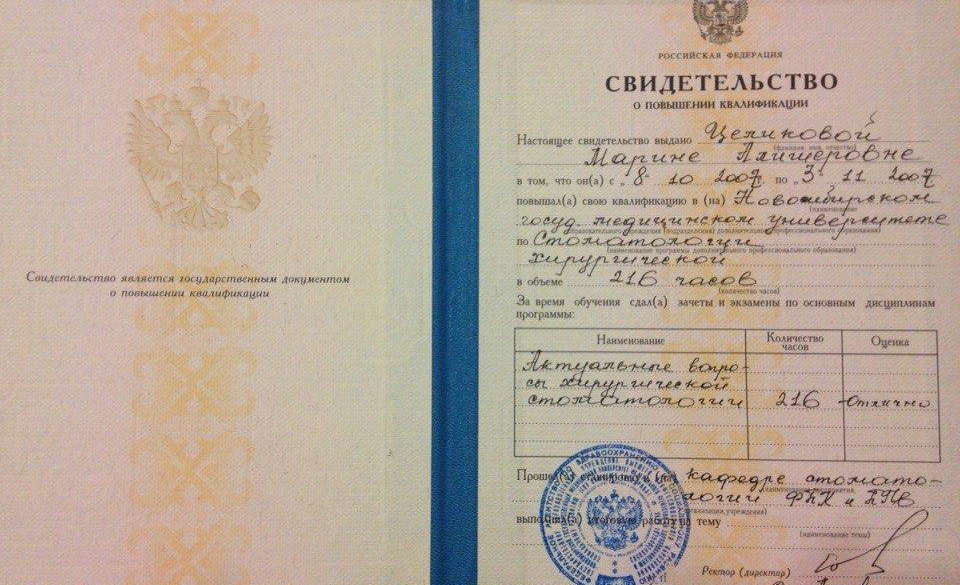 Свидетельство является государственным документом
о повышении квалификации
РОССИЙСКАЯ ФЕДЕРАЦИЯ
СВИДЕТЕЛЬСТВО
О ПОВЫШЕНИИ КВАЛИФИКАЦИИ
Настоящее свидетельство выдано Целиковой
(фамилия, имя, отчество)
Марине Алишеровне
в том, что он(а) с "8" 10 2007 по "3" 11 2007
повышал(а) свою квалификацию в (на) Новосибирском
(наименование
госуд. медицинском университете
образовательного учреждения (подразделения) дополнительного профессионального образования)
по Стоматологии
(наименование программы дополнительного профессионального образования)
хирургической
в объеме 216 часов
(количество часов)
За время обучения сдал(а) зачеты и экзамены по основным дисциплинам
программы:
Наименование Количество часов Оценка
Актуальные вопро-
сы хирургической
стоматологии 216 отлично
Прошел(а) стажировку в (на) кафедре стомато-
логии ФПК и ППВ
организации, учреждения)
выполнил(а) итоговую работу на тему
(наименование темы)
Ректор (директор)